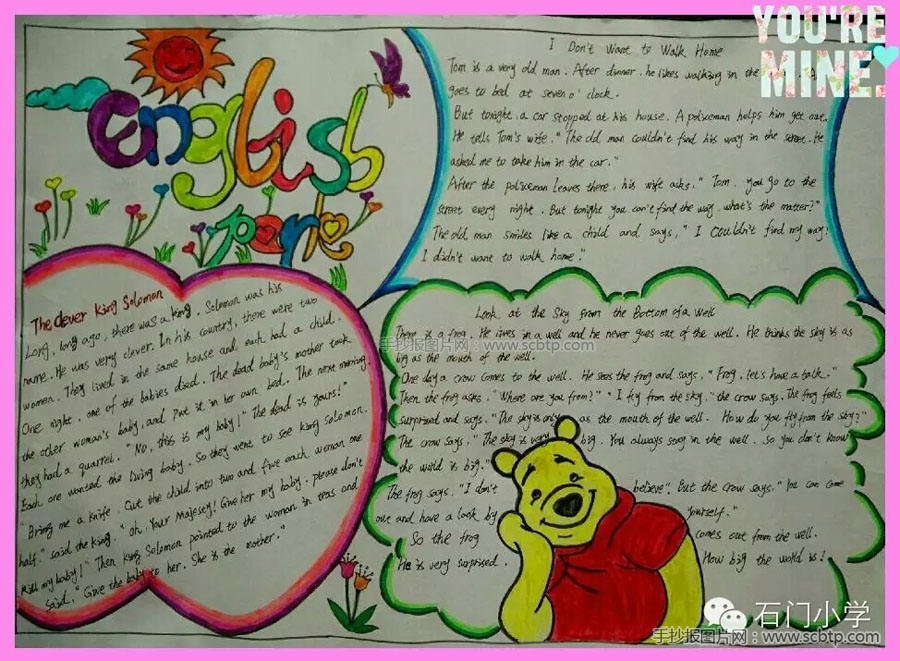 YOU'RE
MINE.
English
park
I Don't Want to Walk Home
Tom is a very old man. After dinner, he likes walking in the
goes to bed at seven o' clock.
But tonight, a car stopped at his house. A policeman helps him get out.
He tells Tom's wife. "The old man couldn't find his way in the street. He
asked me to take him in the car."
After the policeman leaves there, his wife asks, "Tom, you go to the
street every night. But tonight you can't find the way, what's the matter?"
The old man smiles like a child and says, "I couldn't find my way!
I didn't want to walk home."
The clever king Solomon
Long, long ago, there was a king. Solomon was his
name. He was very clever. In his country, there were two
women. They lived in the same house and each had a child.
One night, one of the babies died. The dead baby's mother took
the other woman's baby, and put it in her own bed. The next morning,
they had a quarrel. "No, this is my baby!" The dead is yours!"
Each one wanted the living baby. So they went to see king Solomon.
"Bring me a knife. Cut the child into two and five each woman one
half." said the king. "oh, Your Majesey! Give her my baby, please don't
kill my baby!" Then king Solomon pointed to the woman in teas and
said, "Give the baby to her. She is the mother."
Look at the Sky from the Bottom of a Well
There is a frog. He lives in a well and he never goes out of the well. He thinks the sky is as
big as the mouth of the well.
One day a crow comes to the well. He sees the frog and says, "Frog, let's have a talk."
Then the frog asks, "Where are you from?" "I fly from the sky," the crow says. The frog feels
surprised and says, "The sky is only as the mouth of the well. How do you fly from the sky?"
The crow says, "The sky is very big. You always stay in the well, so you don't know
the world is big."
The frog says, "I don't believe". But the crow says, "You can come
out and have a look by yourself."
So the frog comes out from the well.
He is very surprised. How big the world is!
手抄报图片网：www.scbtp.com
石门小学
手抄报图片网：www.scbtp.com